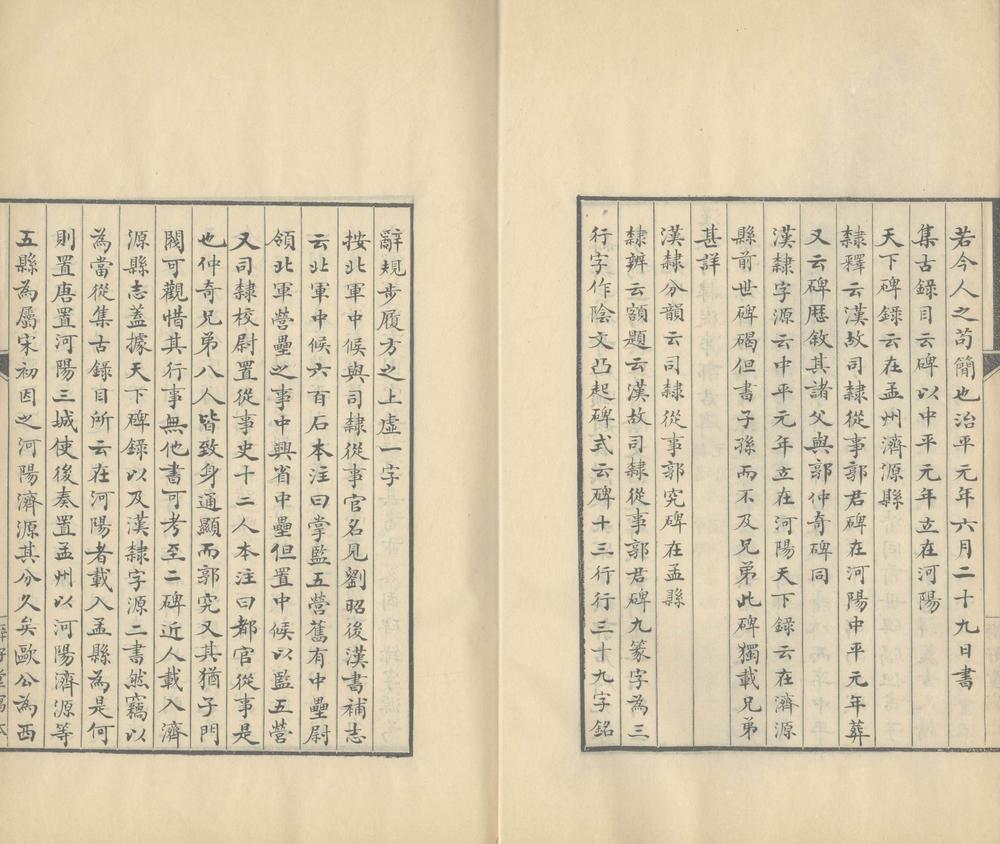 若今人之苟簡也治平元年六月二十九日書
集古録目云碑以中平元年立在河陽
天下碑録云在孟州濟源縣
隸釋云漢故司隸從事郭君碑在河陽中平元年葬
又云碑歴敘其諸父與郭仲奇碑同
漢隸字源云中平元年立在河陽天下録云在濟源
縣前世碑碣但書子孫而不及兄弟此碑獨載兄弟
甚詳
漢隸分韻云司隸從事郭究碑在孟縣
隸辨云額題云漢故司隸從事郭君碑九篆字為三
行字作陰文凸起碑式云碑十三行行三十九字銘
辭規步履方之上虛一字
按北軍中候與司隸從事官名見劉昭後漢書補志
云北軍中候六百石本注曰掌監五營舊有中壘尉
領北軍營壘之事中興省中壘但置中候以監五營
又司隸校尉置從事史十二人本注曰都官從事是
也仲奇兄弟八人皆致身通顯而郭究又其猶子門
閥可觀惜其行事無他書可考至二碑近人載入濟
源縣志蓋據天下碑録以及漢隸字源二書然竊以
為當從集古録目所云在河陽者載入孟縣為是何
則置唐置河陽三城使後奏置孟州以河陽濟源等
五縣為屬宋初因之河陽濟源其分久矣歐公為西